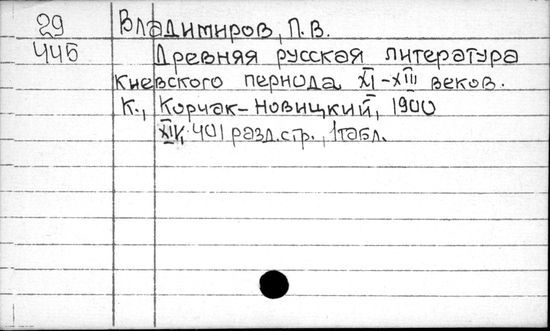 29 Владимиров, П. В.
446 Древняя русская литература
Киевского периода XI-XIII веков.
К., Корчак-Новицкий, 1900
XIV, 401 разд.стр., 1табл.